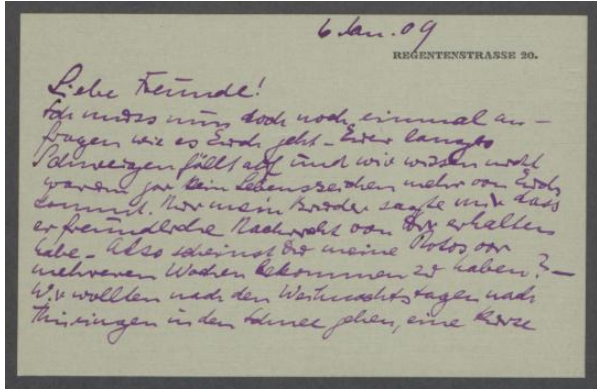 6 Jan. 09
REGENTENSTRASSE 20.
Liebe Freunde!
Ich muss nun doch noch einmal an-
fragen wie es Euch geht - Euer langes
Schweigen fällt auf und wir wissen nicht
warum gar kein Lebenszeichen mehr von Euch
kommt. Nur mein Bruder sagte mir dass
er freundliche Nachricht von Dir erhalten
habe - Also scheinst Du meine Fotos vor
mehreren Wochen bekommen zu haben? -
Wir wollten nach den Weihnachtstagen nach
Thüringen in den Schnee gehen, eine kurze